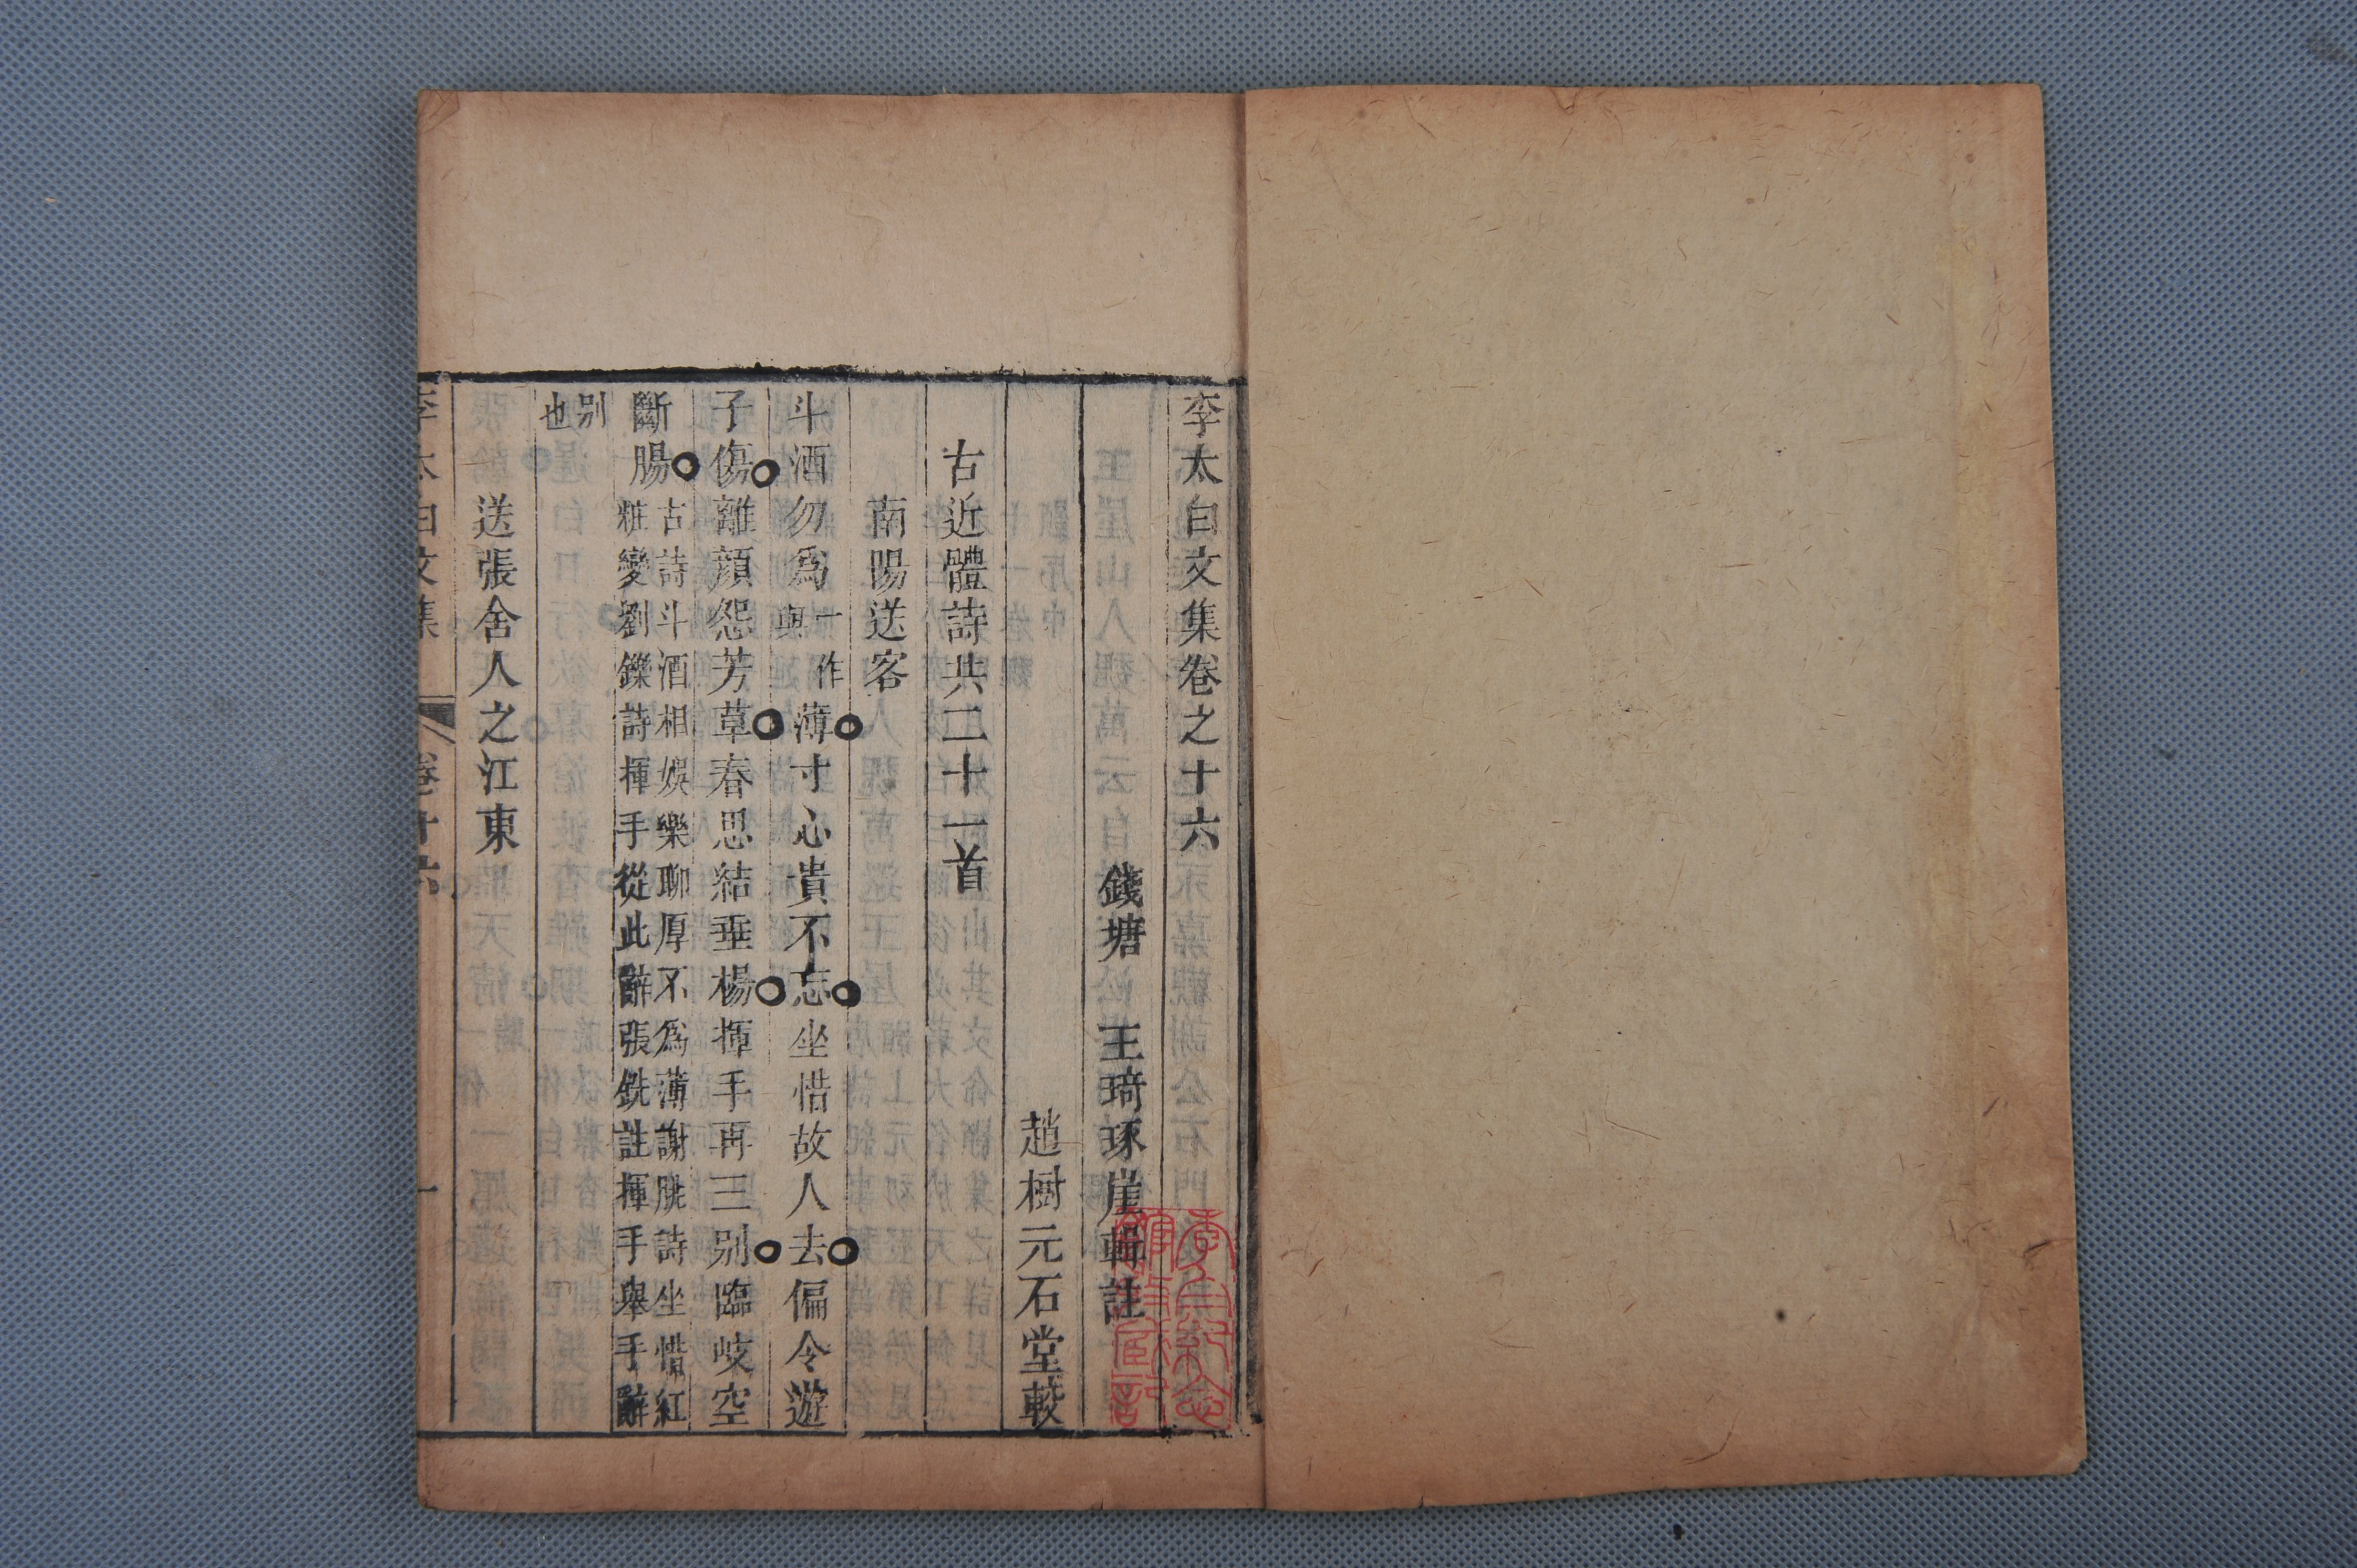 李太白文集卷之十六
錢塘 王琦琢崖輯註
趙樹元石堂較
古近體詩共二十一首
南陽送客
斗酒勿爲一作與薄寸心貴不忘坐惜故人去偏令遊
子傷離顏怨芳草春思結垂楊揮手再三别臨岐空
斷腸古詩斗酒相娛樂聊厚不爲薄謝脁詩坐惜紅
粧變劉鑠詩揮手從此辭張銑註揮手舉手辭
别也
送張舍人之江東
李太白文集 卷十六 一